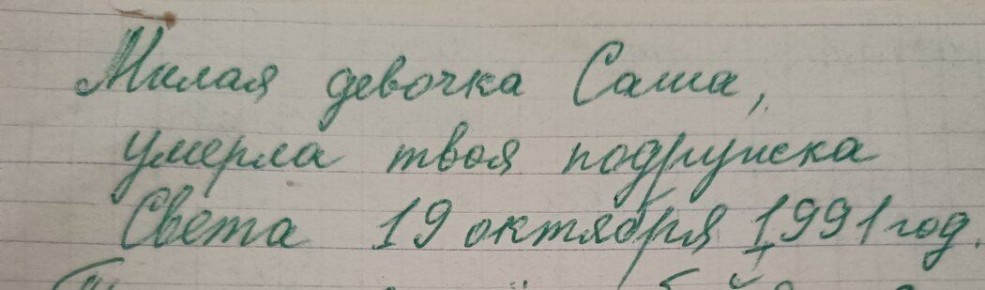 Милая девочка Саша,
умерла твоя подружка
Света 19 октября 1991 год.